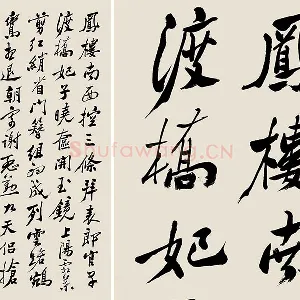 鳳樓南面控三條拜表郎官早
渡橋妃子曉奩開玉鏡上陽霜葉
剪紅綃省門簪組初成列雲路
鸞想退朝寄謝慇懃九天侶搶
鳳樓南
渡橋妃
Shufawang.CN